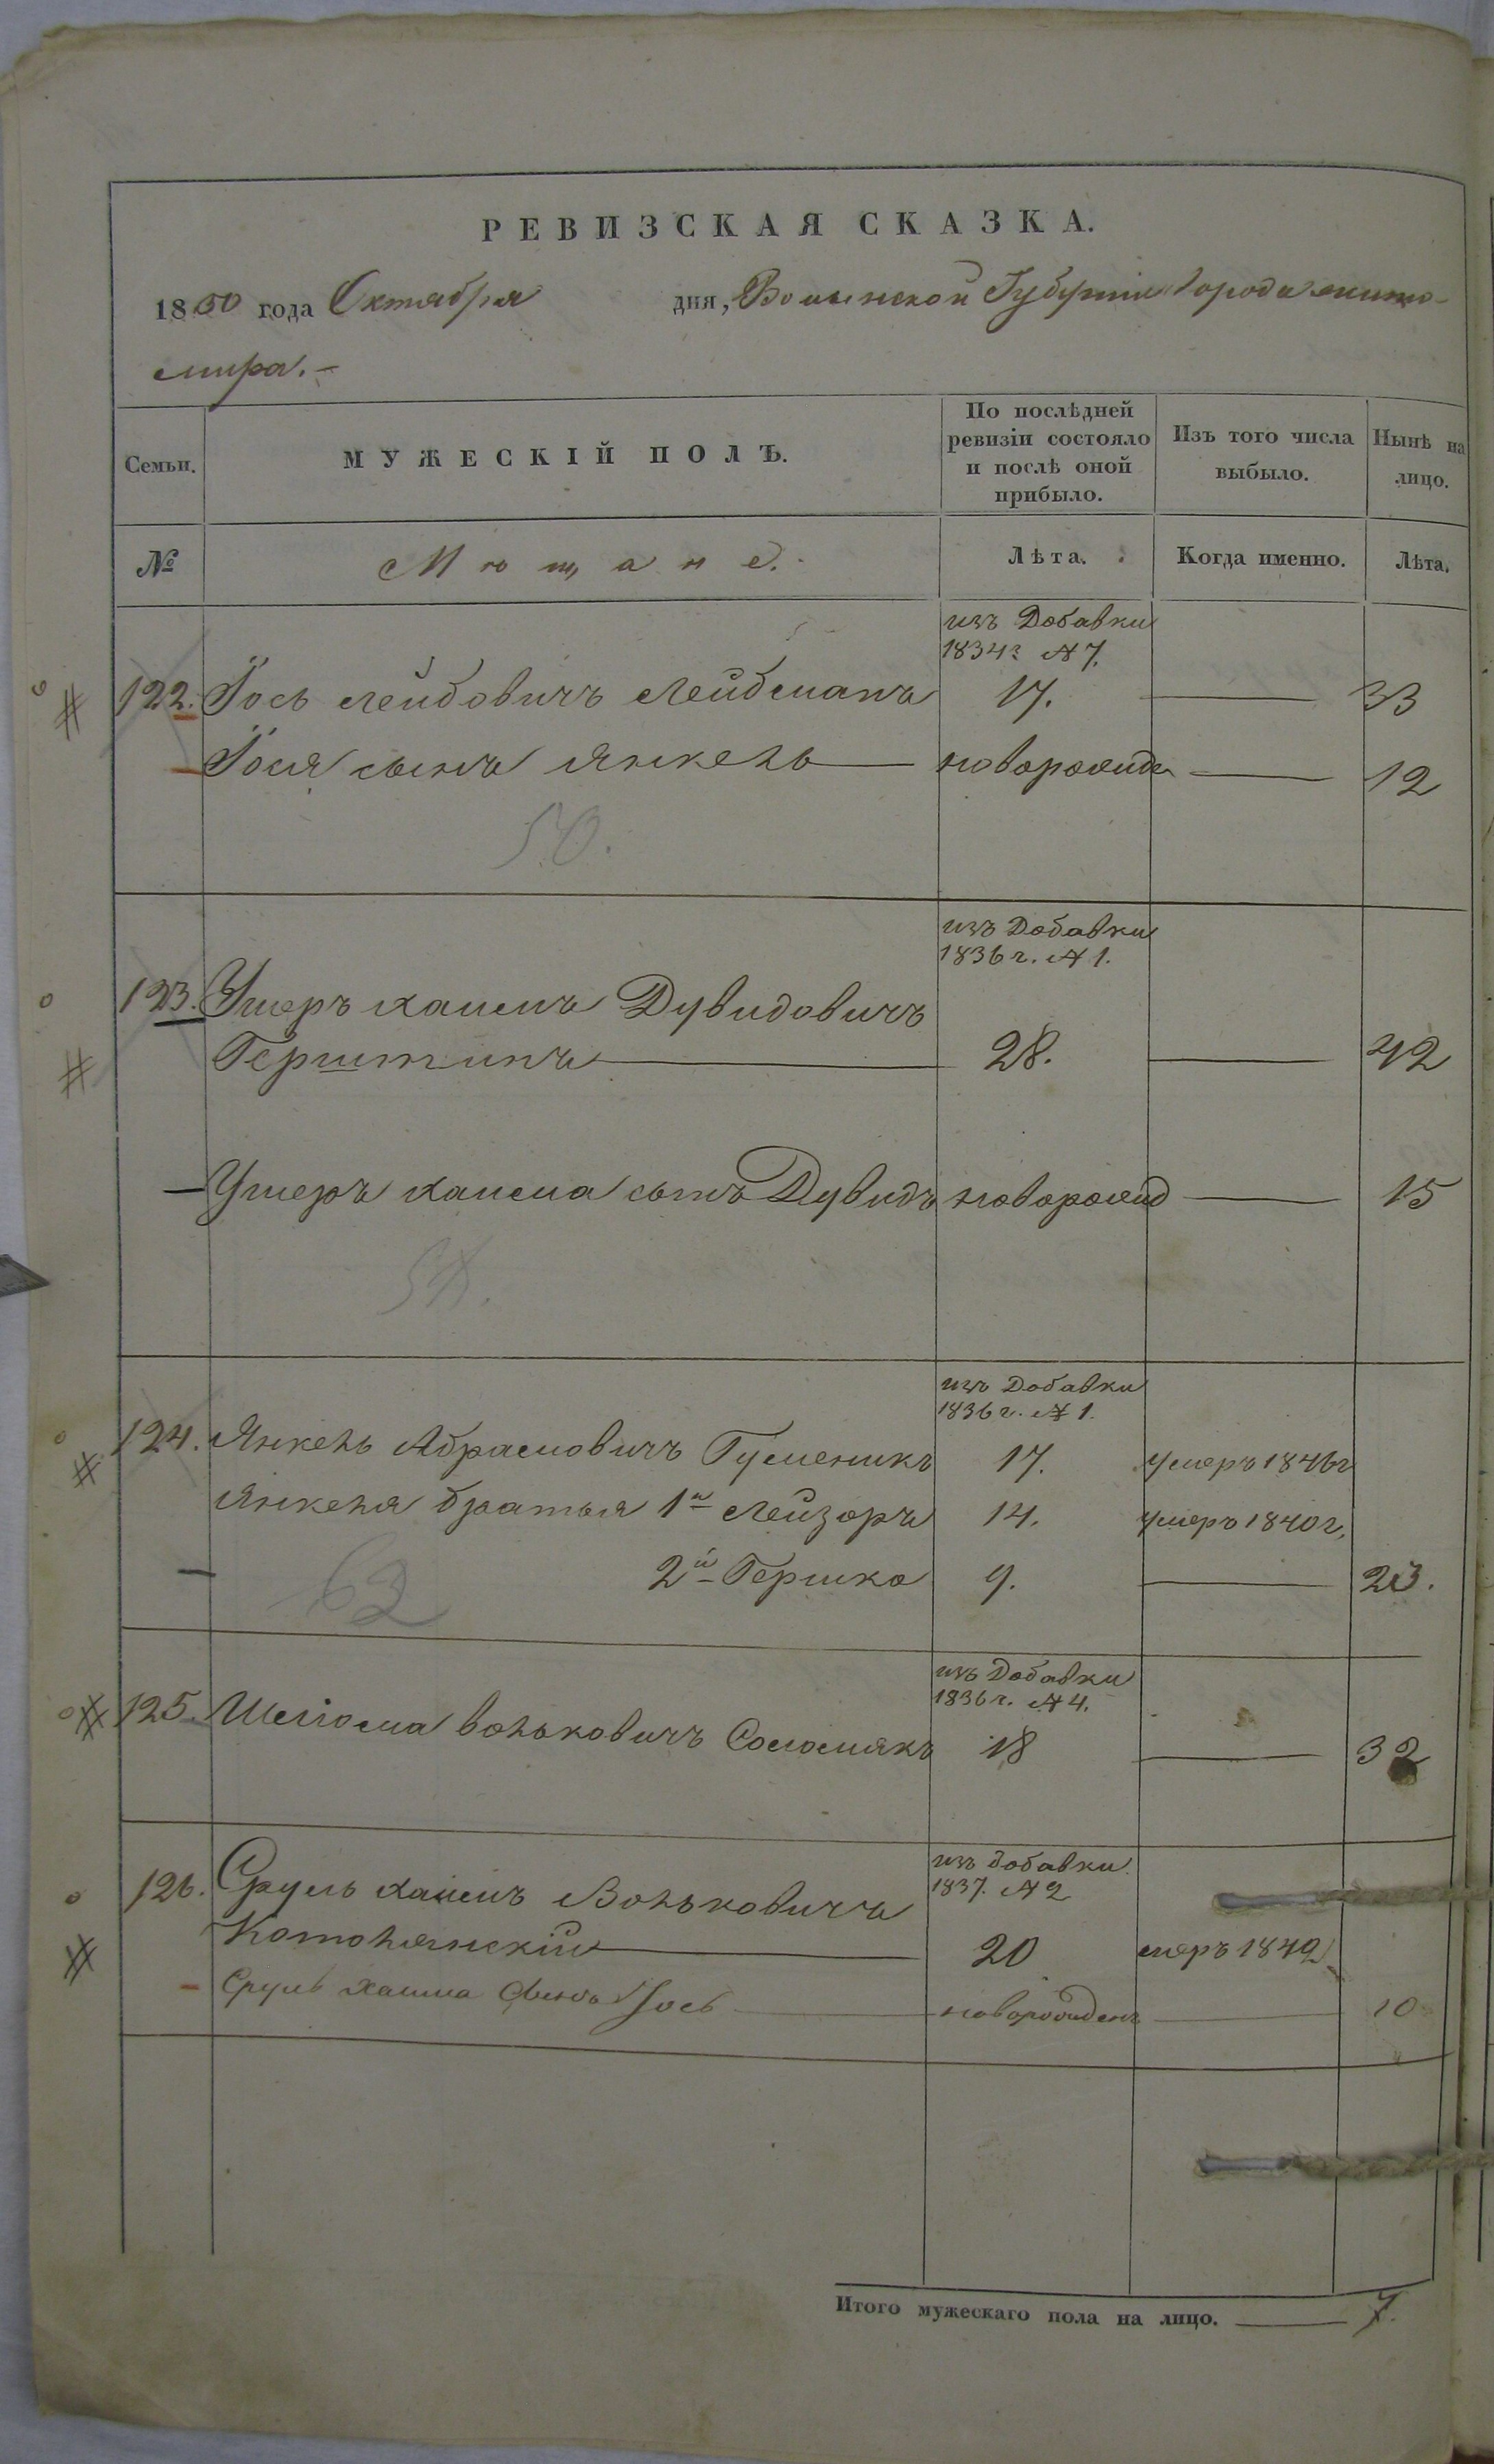 РЕВИЗСКАЯ СКАЗКА.
1850 года Октября дня, Волынской Губернии Города Жито-
мира. -
Семьи. МУЖЕСКІЙ ПОЛЪ. По послѣдней ревизіи состояло и послѣ оной прибыло. Изъ того числа выбыло. Нынѣ на лицо.
№ Мѣщане. Лѣта. Когда именно. Лѣта.
изъ Добавки
1834г №7.
122. Іось Лейбовичъ Лейбманъ 17. — 33
Іося сынъ Янкель — новорожде — 12
50.
изъ Добавки
1836г. №1.
123. Ушеръ Хаимъ Дувидовичъ
Герштинъ — 28. — 42
— Ушеръ Хаима сынъ Дувидъ новорожд — 15
изъ Добавки
1836г. №1.
124. Янкель Абрамовичъ Гуменикъ 17. умеръ 1846г
Янкеля братья 1й Лейзоръ 14. умеръ 1840г.
— 2й Гершко 9. — 23.
62
изъ Добавки
1836г. №4.
125. Шліома Вольковичъ Соломякъ 18 — 32
изъ добавки
1837. №2
126. Сруль Хаимъ Вольковичъ
Котолянскій — 20 умеръ 1842
- Сруль Хаима Сынъ Іось — новорожденъ — 10
Итого мужескаго пола на лицо. — 7.